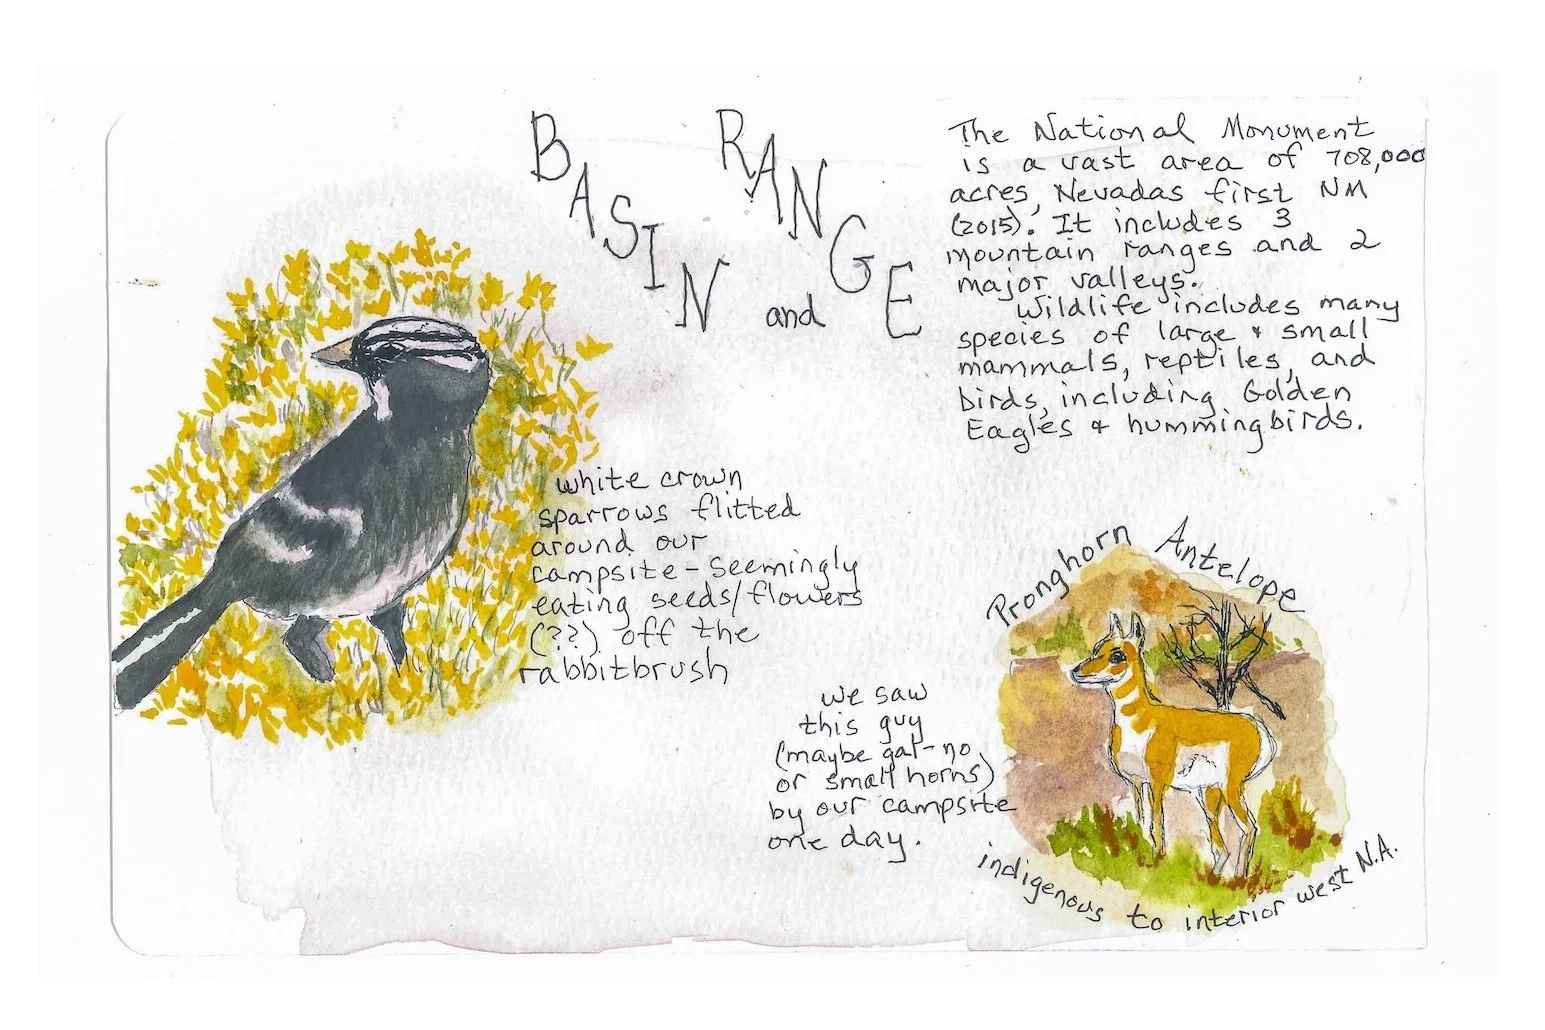 BASIN and RANGE
The National Monument
is a vast area of 708,000
acres, Nevadas first NM
(2015). It includes 3
mountain ranges and 2
major valleys.
Wildlife includes many
species of large & small
mammals, reptiles, and
birds, including Golden
Eagles & hummingbirds.
white crown
sparrows flitted
around our
campsite - seemingly
eating seeds/flowers
(??) off the
rabbitbrush
we saw
this guy
(maybe gal - no
or small horns)
by our campsite
one day.
Pronghorn Antelope
indigenous to interior west N.A.